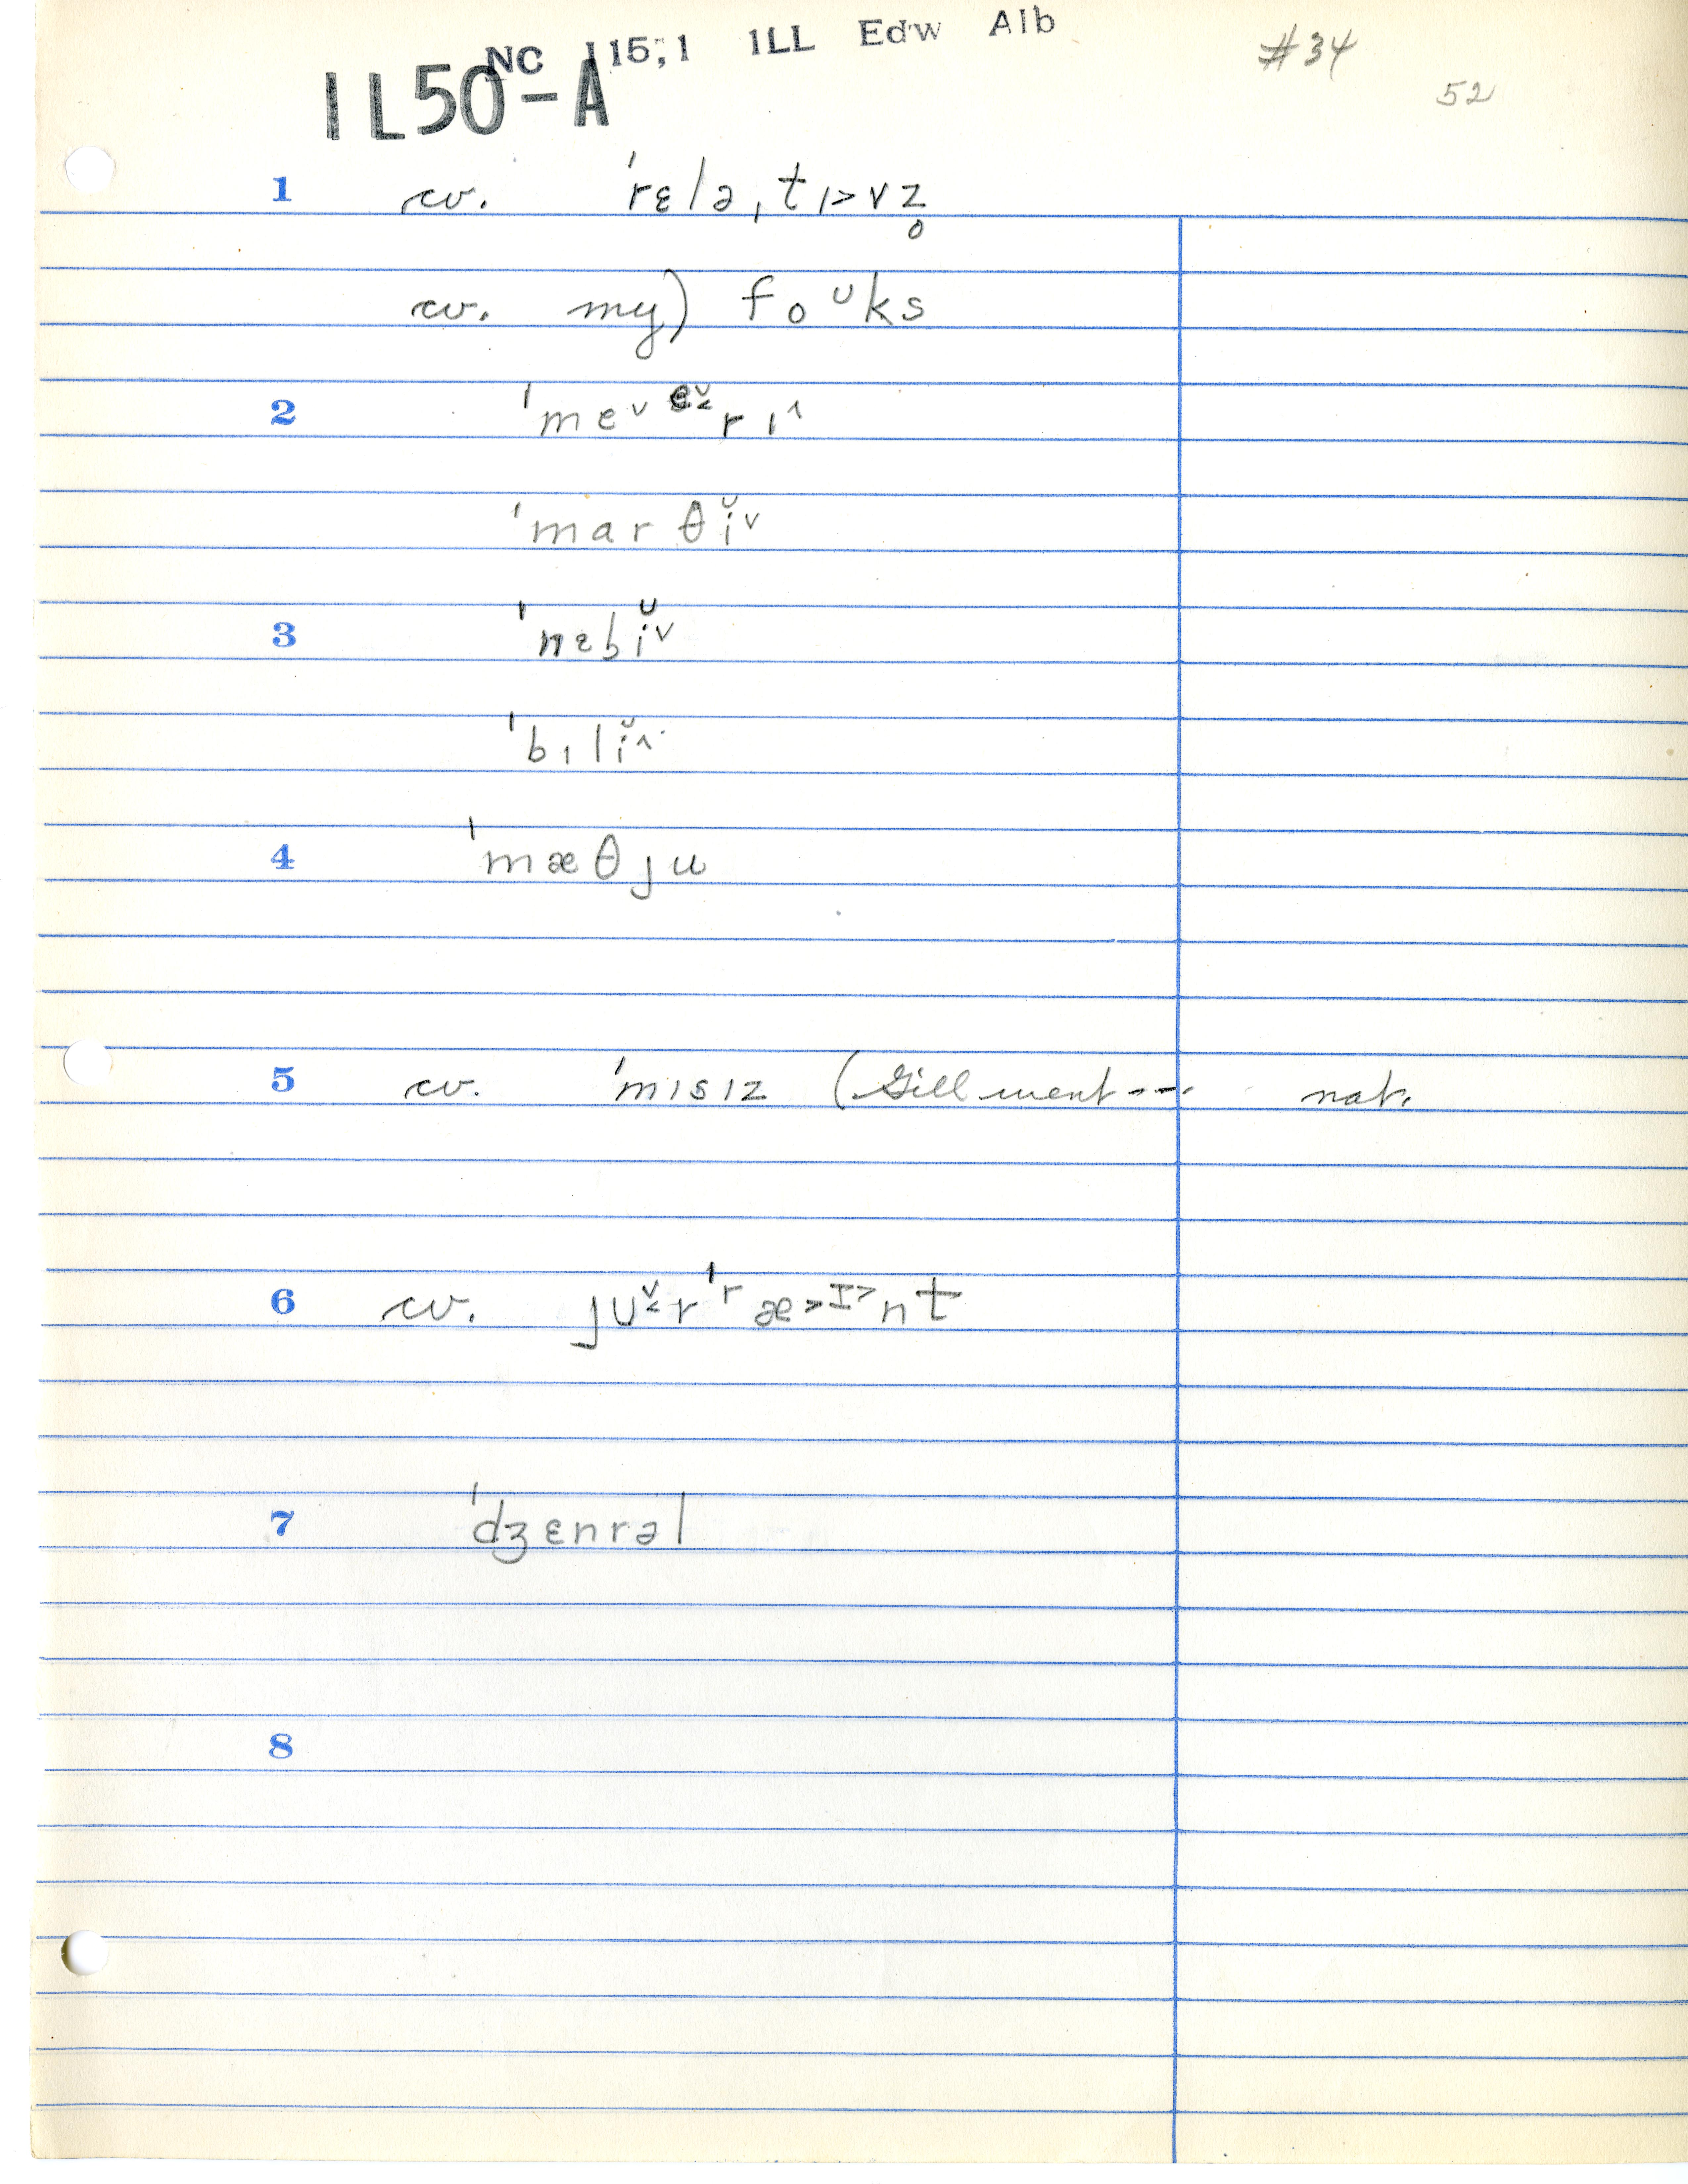 NC 115;1 ILL Edw Alb
#34
1L50-A
52
1 cv. ˈrɛləˌtɪ>vz̥
cv. my) foᶷks
2 ˈme˅ᵉ̆˂rɪ˄
ˈmarθĭ˅
3 ˈnɛbĭ˅
ˈbɪlĭ˄
4 ˈmæθju
5 cv. ˈmɪsɪz (Gill went --- nat.
6 cv. jʊ˅˂rˈræ>ɪ>nt
7 ˈdʒɛnrəl
8